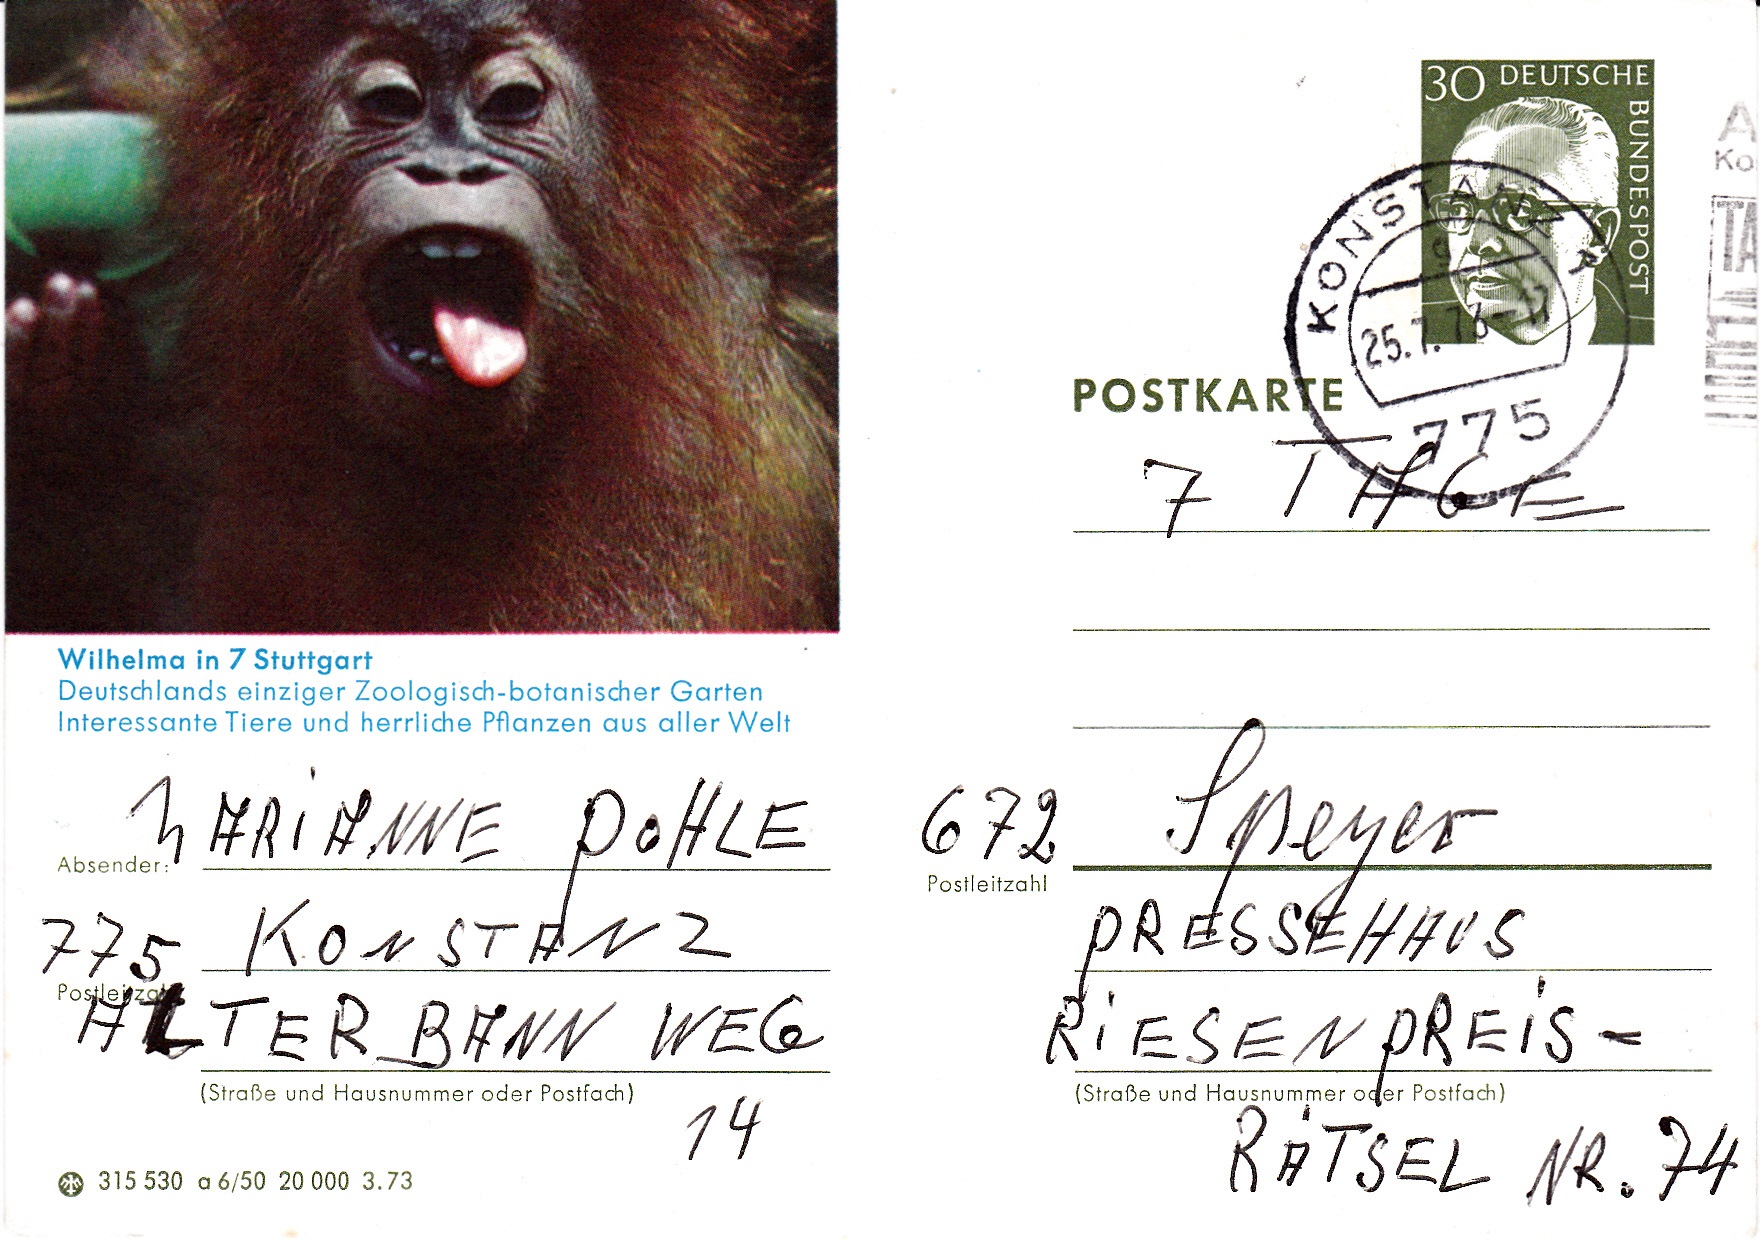 Wilhelma in 7 Stuttgart
Deutschlands einziger Zoologisch-botanischer Garten
Interessante Tiere und herrliche Pflanzen aus aller Welt
MARIANNE POHLE
Absender:
775 KONSTANZ
Postleitzahl
ALTER BANN WEG
(Straße und Hausnummer oder Postfach)
14
315 530 a 6/50 20 000 3.73
30 DEUTSCHE BUNDESPOST
KONSTANZ
25.7.73-11
775
POSTKARTE
7 TAGE
672 Speyer
Postleitzahl
PRESSEHAUS
RIESENPREIS-
(Straße und Hausnummer oder Postfach)
RÄTSEL NR. 74